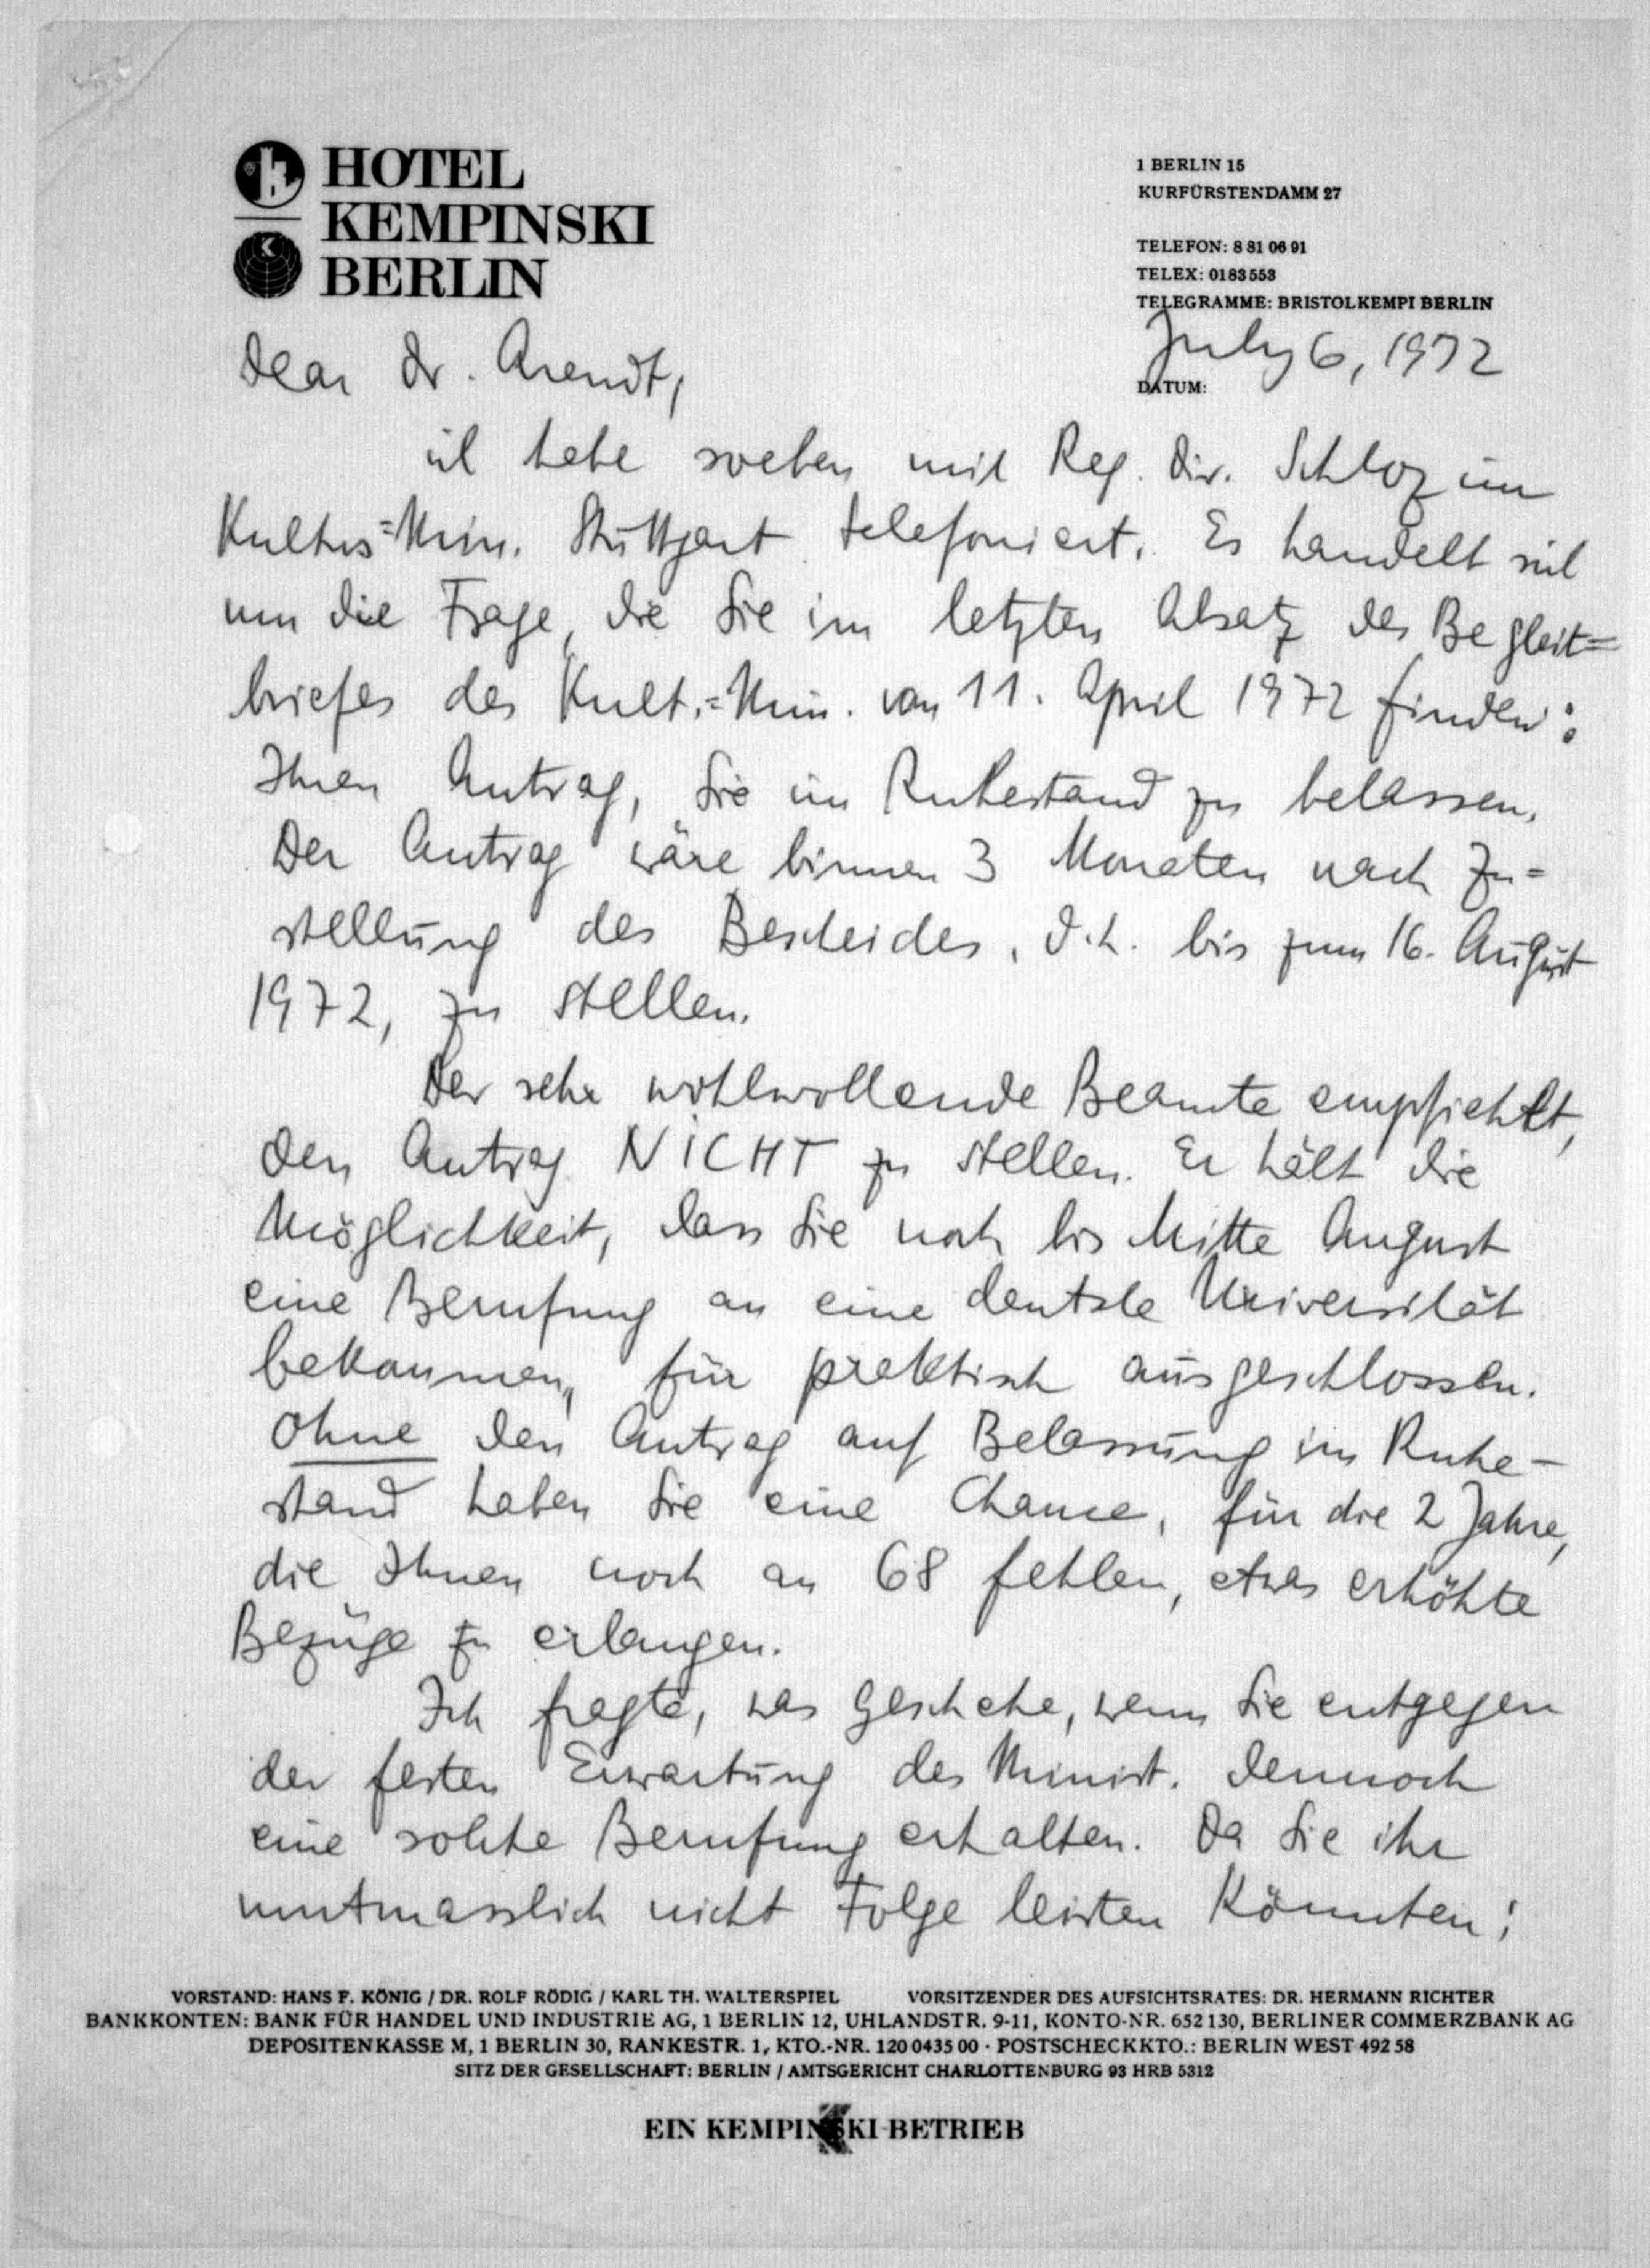 HOTEL
KEMPINSKI
BERLIN
1 BERLIN 15
KURFÜRSTENDAMM 27
TELEFON: 8 81 06 91
TELEX: 0183553
TELEGRAMME: BRISTOLKEMPI BERLIN
July 6, 1972
DATUM:
Dear Dr. Arendt,
ich habe soeben mit Reg. Dir. Schloz im
Kultus=Min. Stuttgart telefoniert. Es handelt sich
um die Frage, die Sie im letzten Absatz des Begleit=
briefes des Kult.=Min. vom 11. April 1972 finden:
Ihren Antrag, Sie im Ruhestand zu belassen.
Der Antrag wäre binnen 3 Monaten nach Zu=
stellung des Bescheides, d.h. bis zum 16. August
1972, zu stellen.
Der sehr wohlwollende Beamte empfiehlt,
den Antrag NICHT zu stellen. Er hält die
Möglichkeit, dass Sie noch bis Mitte August
eine Berufung an eine deutsche Universität
bekommen, für praktisch ausgeschlossen.
Ohne den Antrag auf Belassung im Ruhe-
stand haben Sie eine Chance, für die 2 Jahre,
die Ihnen noch an 68 fehlen, etwas erhöhte
Bezüge zu erlangen.
Ich fragte, was geschehe, wenn Sie entgegen
der festen Erwartung des Minist. dennoch
eine solche Berufung erhalten. Da Sie ihr
mutmasslich nicht Folge leisten könnten;
VORSTAND: HANS F. KÖNIG / DR. ROLF RÖDIG / KARL TH. WALTERSPIEL VORSITZENDER DES AUFSICHTSRATES: DR. HERMANN RICHTER
BANKKONTEN: BANK FÜR HANDEL UND INDUSTRIE AG, 1 BERLIN 12, UHLANDSTR. 9-11, KONTO-NR. 652 130, BERLINER COMMERZBANK AG
DEPOSITENKASSE M, 1 BERLIN 30, RANKESTR. 1, KTO.-NR. 120 0435 00 · POSTSCHECKKTO.: BERLIN WEST 492 58
SITZ DER GESELLSCHAFT: BERLIN / AMTSGERICHT CHARLOTTENBURG 93 HRB 5312
EIN KEMPINSKI-BETRIEB